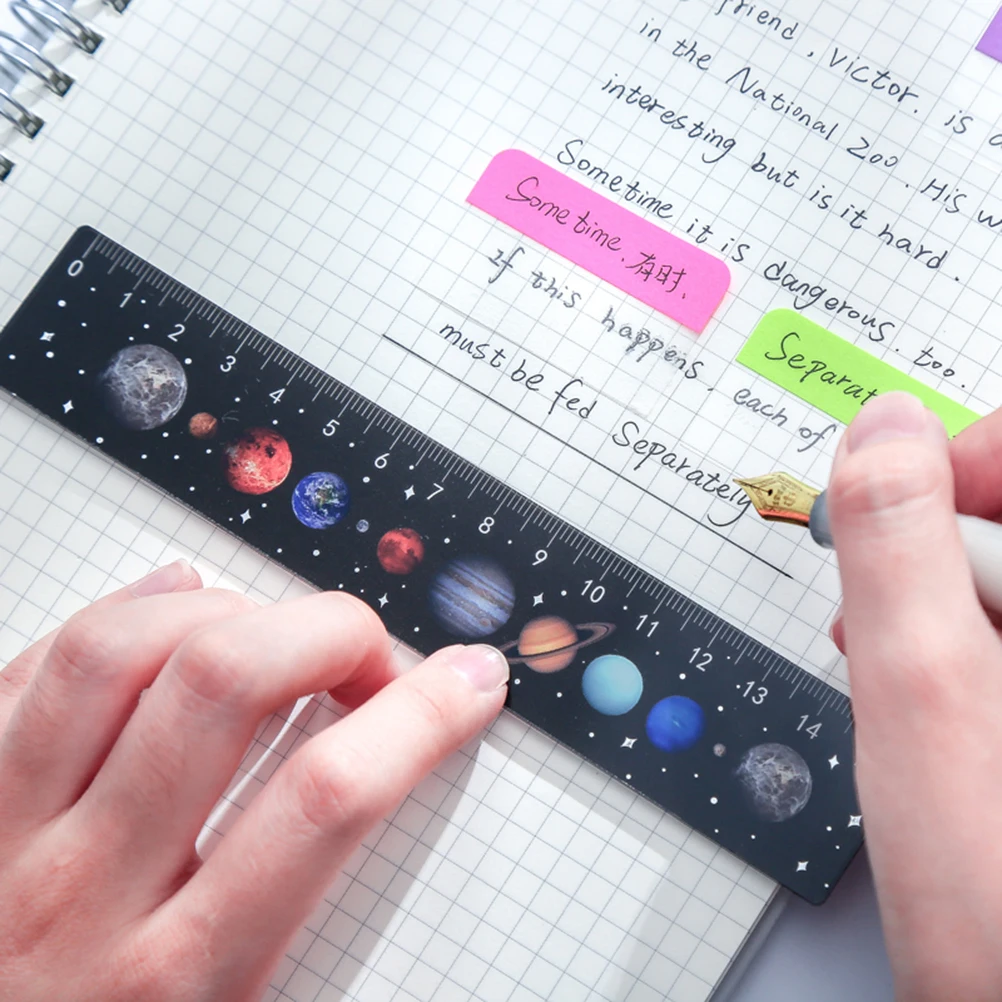 friend, Victor. is
in the National Zoo. His
interesting but is it hard.
Sometime it is dangerous. too.
Sometime. 有时.
If this happens. each of
Separat
must be fed Separately
0 1 2 3 4 5 6 7 8 9 10 11 12 13 14